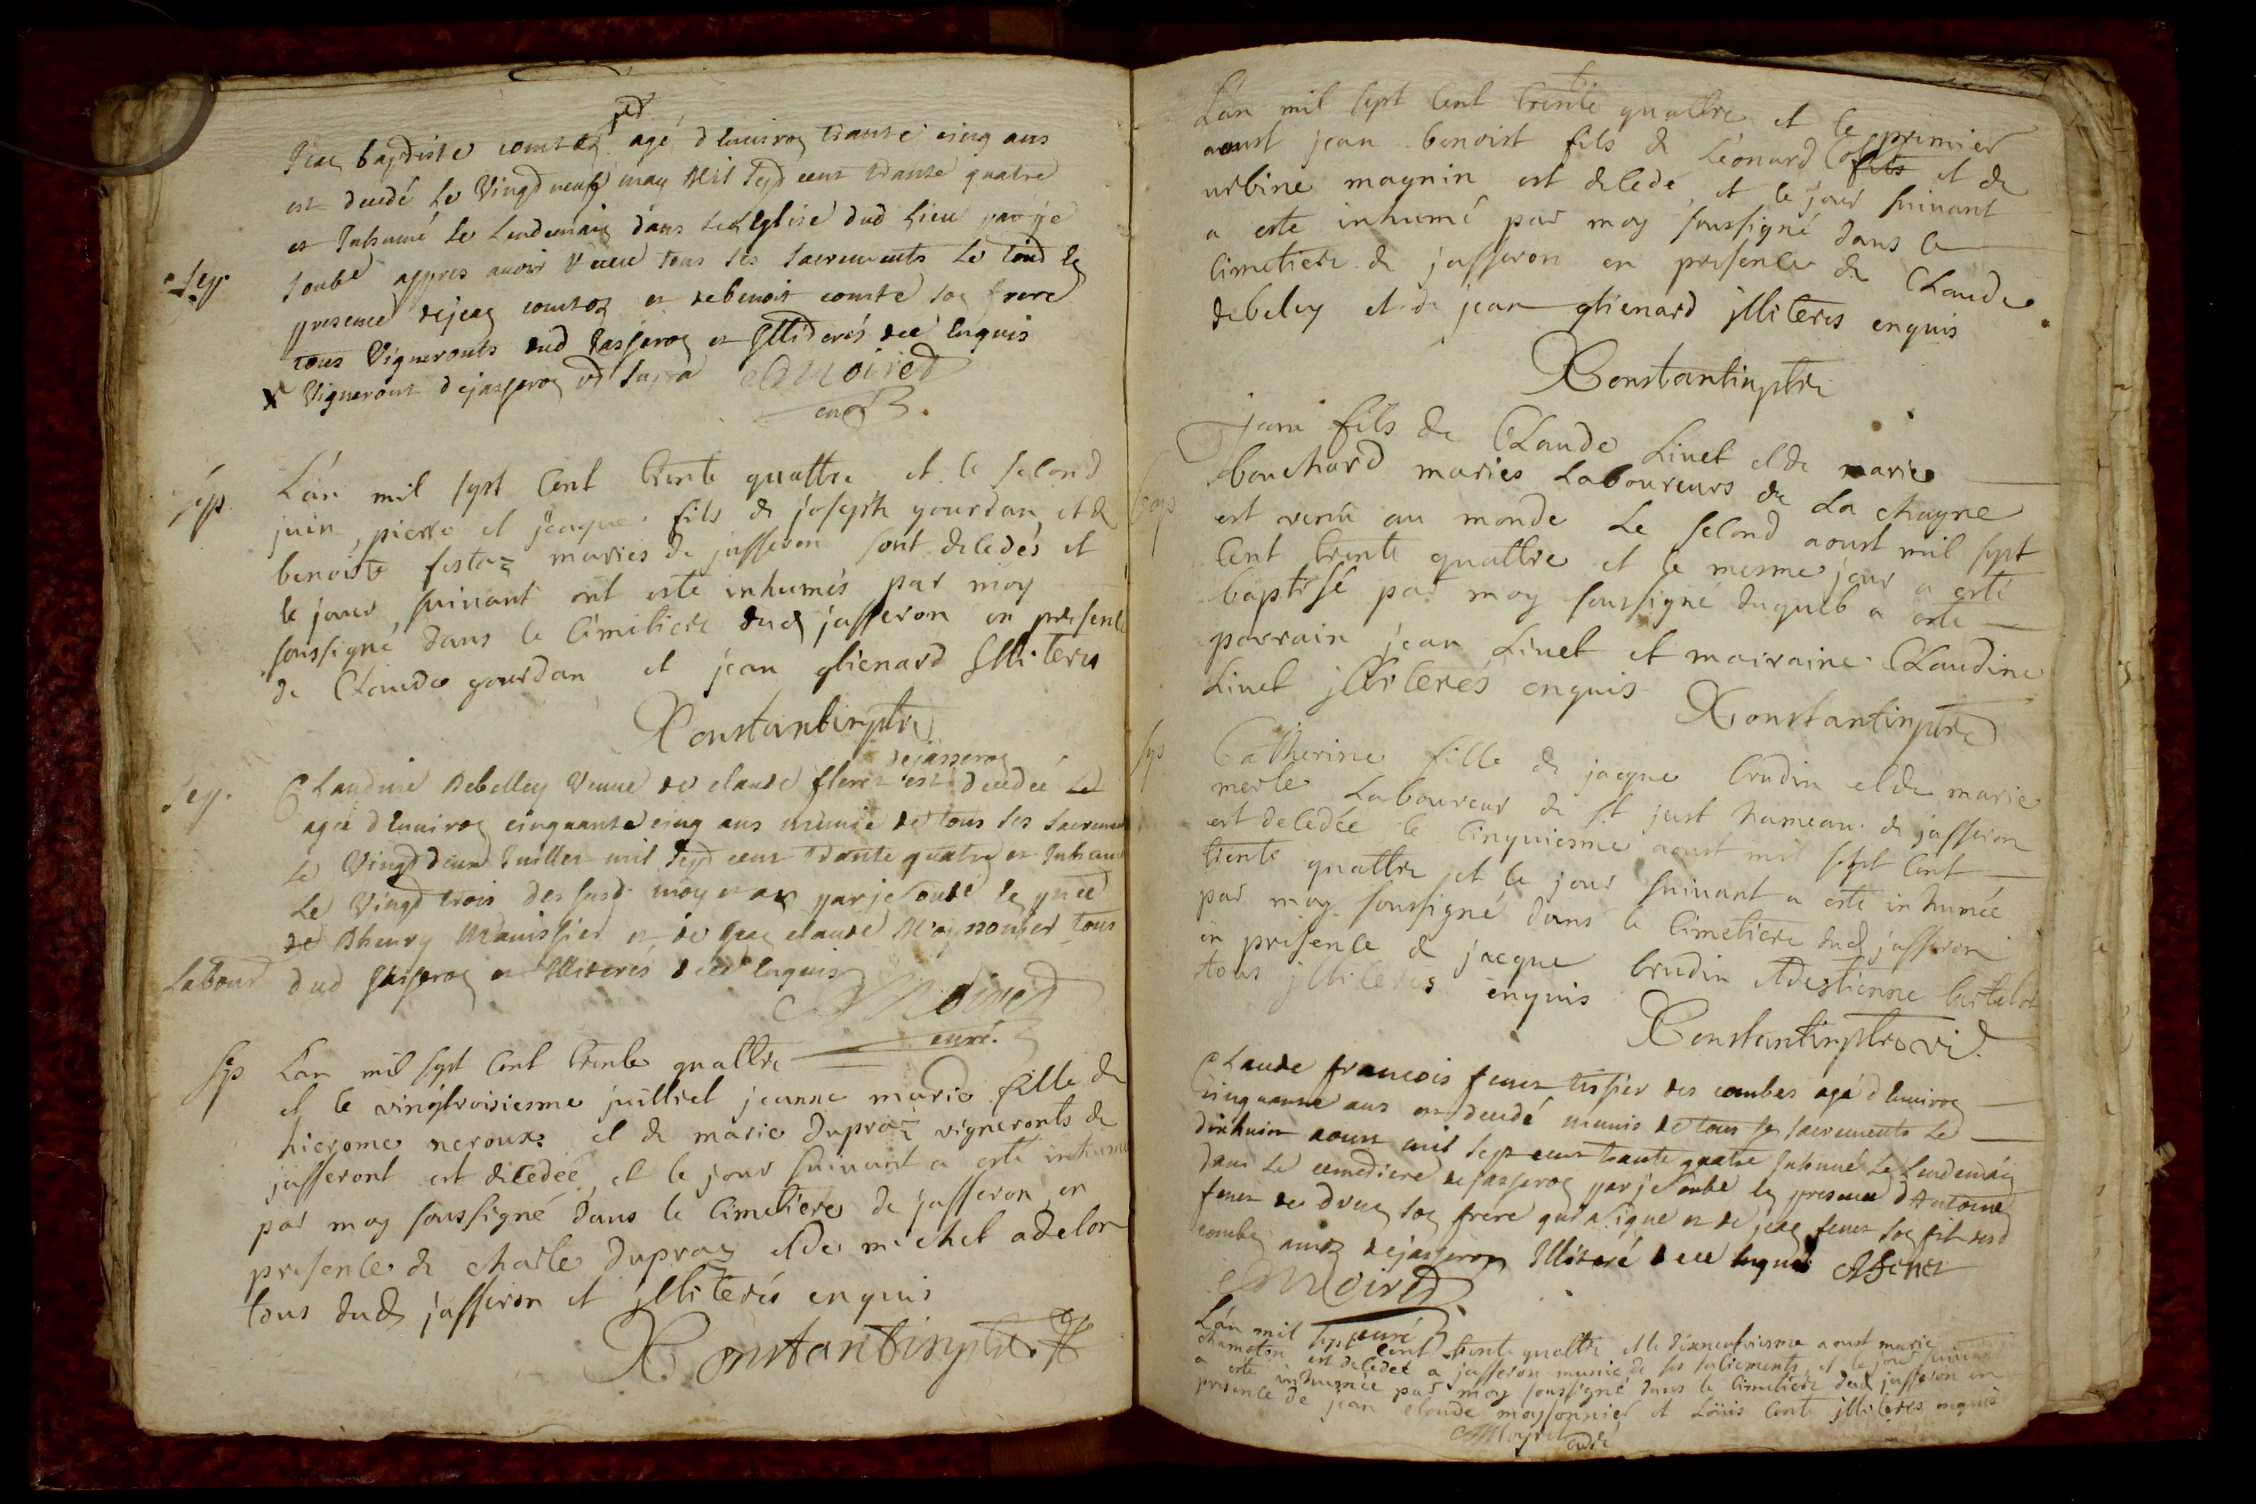 Jean baptiste comtet agé denviron trante cinq ans
est decedé Le Vingt neuf may Mil Sept cent trante quatre
et Inhumé Le Lendemain dans Leglise dud Lieu par je
soubs appres avoir receu tous Ses Sacrements Le tout en
Sep
presence de jean comtet et de benoit comte son frere
tous Vignerons dud Jasseron et Illiterés de ce Enquis
X Vigneront de jasseron ut supra Moiret
curé
sep L'an mil sept Cent trente quattre et le second
juin, pierre et jacque fils de joseph gourdan, et de
benoiste festaz mariés de jasseron sont decedés et
le jour suivant ont esté inhumés par moy
soussigné dans le cimetiere dud jasseron en presence
de Claude gourdan et jean glienard Illiteres
Constantin ptre
de jasseron
Sep. Claudine Debelley Veuve de claude floret est decedée Le
agée denviron cinquante cinq ans munie de tous Ses Sacremens
Le Vingt deux Juillet mil Sept cent trante quatre et Inhumé
Le Vingt trois des susd moy et an par je soubs en pnce
de Dhenry Manissier et de Jean claude Moissonier tous
Labour dud Jasseron et Illiteres de ce Enquis
Moiret
curé.
sep L'an mil sept Cent trente quattre
et le vingtroisiesme juilliet jeanne marie fille de
hierome neroux et de marie dupraz vigneronts de
jasseront est decedée, et le jour suivant a esté inhumé
par moy soussigné dans le Cimetiere de jasseron en
presence de charle dupraz et de michel adelon
tous dud jasseron et illiterés enquis
Constantin ptre
L'an mil sept Cent trente quattre et le primier
aoust jean benoist fils de Léonard et de
urbine maynin est decedé, et le jour suivant
a esté inhumé par moy soussigné dans le
Cimetiere de jasseron en presence de Claude
debeley et de jean glienard illiterés enquis
Constantin ptre
jean fils de Claude Livet et de marie
bouchard mariés Laboureurs de La chayne
bap est venu au monde Le second aoust mil sept
Cent trente quattre et le mesme jour a esté
baptisé par moy soussigné duquel a esté
parrain jean Livet et mairaine Claudine
Livet illiteres enquis
Constantin ptre
sep Catherine fille de jacque brudin et de marie
merle Laboureur de st just hameau de jasseron
est decedée le Cinquiesme aoust mil sept Cent
trente quattre et le jour suivant a esté inhumée
par moy soussigné dans le Cimetiere dud jasseron
en presence de jacque brudin et destienne bertelot
tous illiteres enquis
Constantin ptre vic.
Claude francois feuer tissier des combes agé denviron
Cinquante ans est decedé munis de tous ses sacrements Le
dixhuit aoust mil sept cent trante quatre Inhumé Le Lendemain
dans Le cemetiere de Jasseron par je soubs en presence dAntoine
feuer de drun son frere qui a signé et de jean feuer son fils desd
combes annex de jasseron Illiteré de ce enquis
Moiret
curé
L'an mil sept cent trente quattre et le dixneufviesme aoust marie
chamoton est decedée a jasseron munie de ses sacrements, et le jour suivant
a esté inhumée par moy soussigné dans le Cimetiere dud jasseron en
presence de jean claude moyssonnier et Loüis Cont illiteres enquis
Moyret
curé